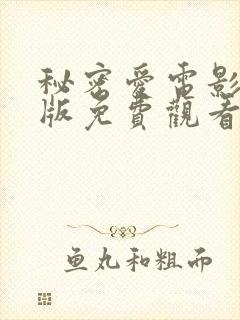 秘密愛電影
版免費觀看
鱼丸和粗面